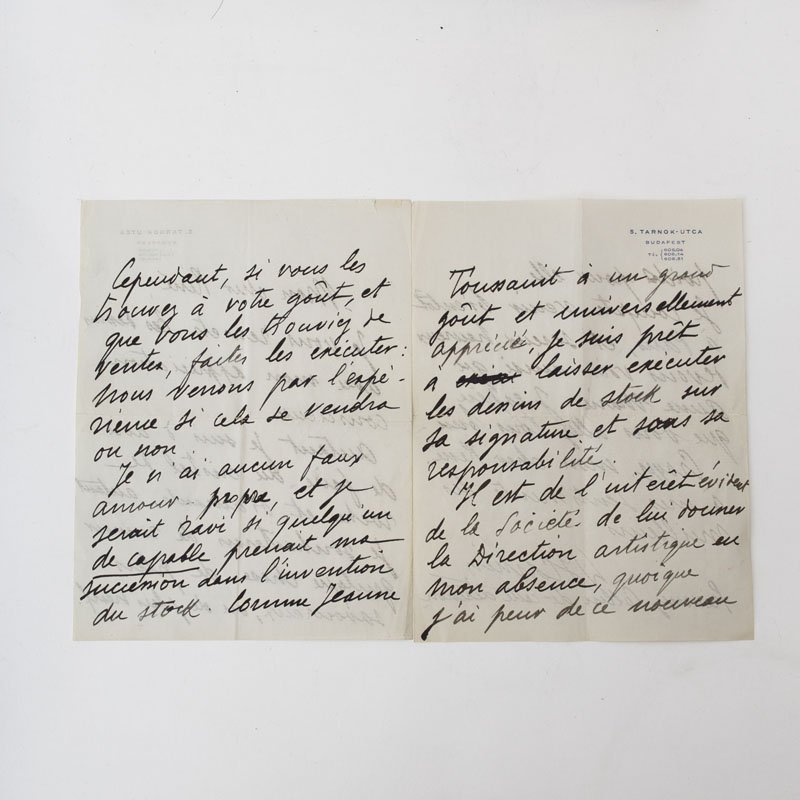 Cependant, si vous les
trouvez à votre goût, et
que vous les trouviez de
ventes, faites les exécuter:
nous venons par l'expé-
rience si cela se vendra
ou non.
Je n'ai aucun faux
amour-propre, et je
serait ravi si quelqu'un
de capable prenait ma
succession dans l'invention
du stock. Comme Jeanne
S. TARNOK-UTCA
BUDAPEST
Toussaint à un grand
goût et universellement
apprécié, je suis prêt
a laisser exécuter
les dessins de stock sur
sa signature et sous sa
responsabilité.
Il est de l'interêt évident
de la Société de lui donner
la Direction artistique en
mon absence, quoique
j'ai peur de ce nouveau